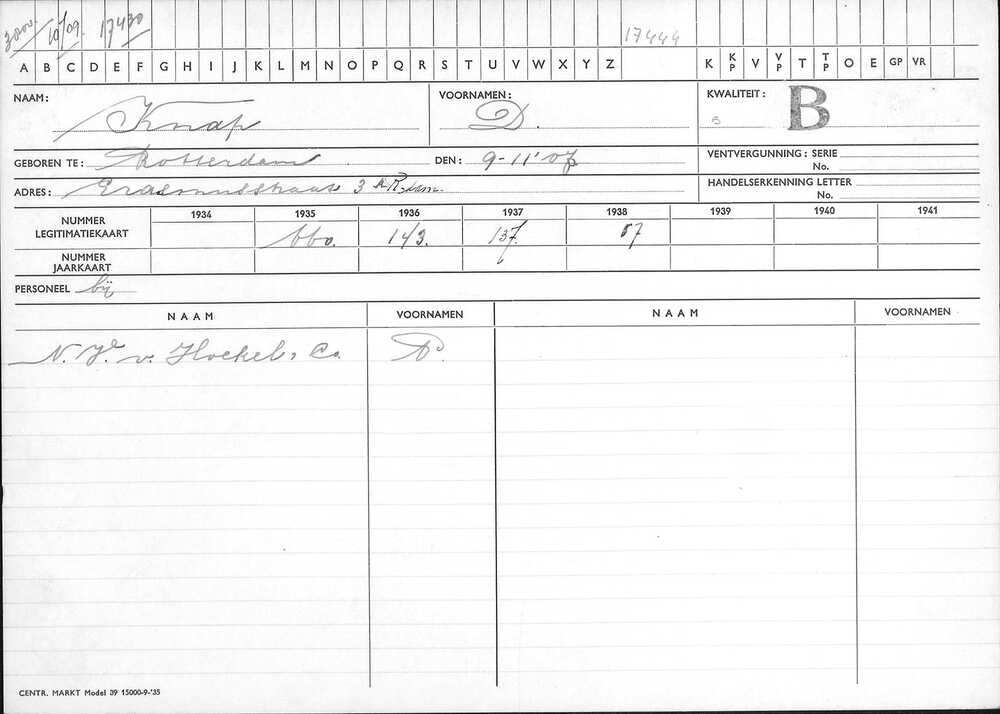 3000. 10/09. 17430 17444
A B C D E F G H I J K L M N O P Q R S T U V W X Y Z K KP V VP T TP O E GP VR
NAAM: Knap VOORNAMEN: D. KWALITEIT: B B
GEBOREN TE: Rotterdam DEN: 9-11'07 VENTVERGUNNING: SERIE
No.
ADRES: Erasmusstraat 3 R.dam. HANDELSERKENNING LETTER
No.
1934 1935 1936 1937 1938 1939 1940 1941
NUMMER LEGITIMATIEKAART 660. 143. 137. 57
NUMMER JAARKAART
PERSONEEL bij
NAAM VOORNAMEN NAAM VOORNAMEN
N. v. Hoekel & Co.
CENTR. MARKT Model 39 15000-9-'35